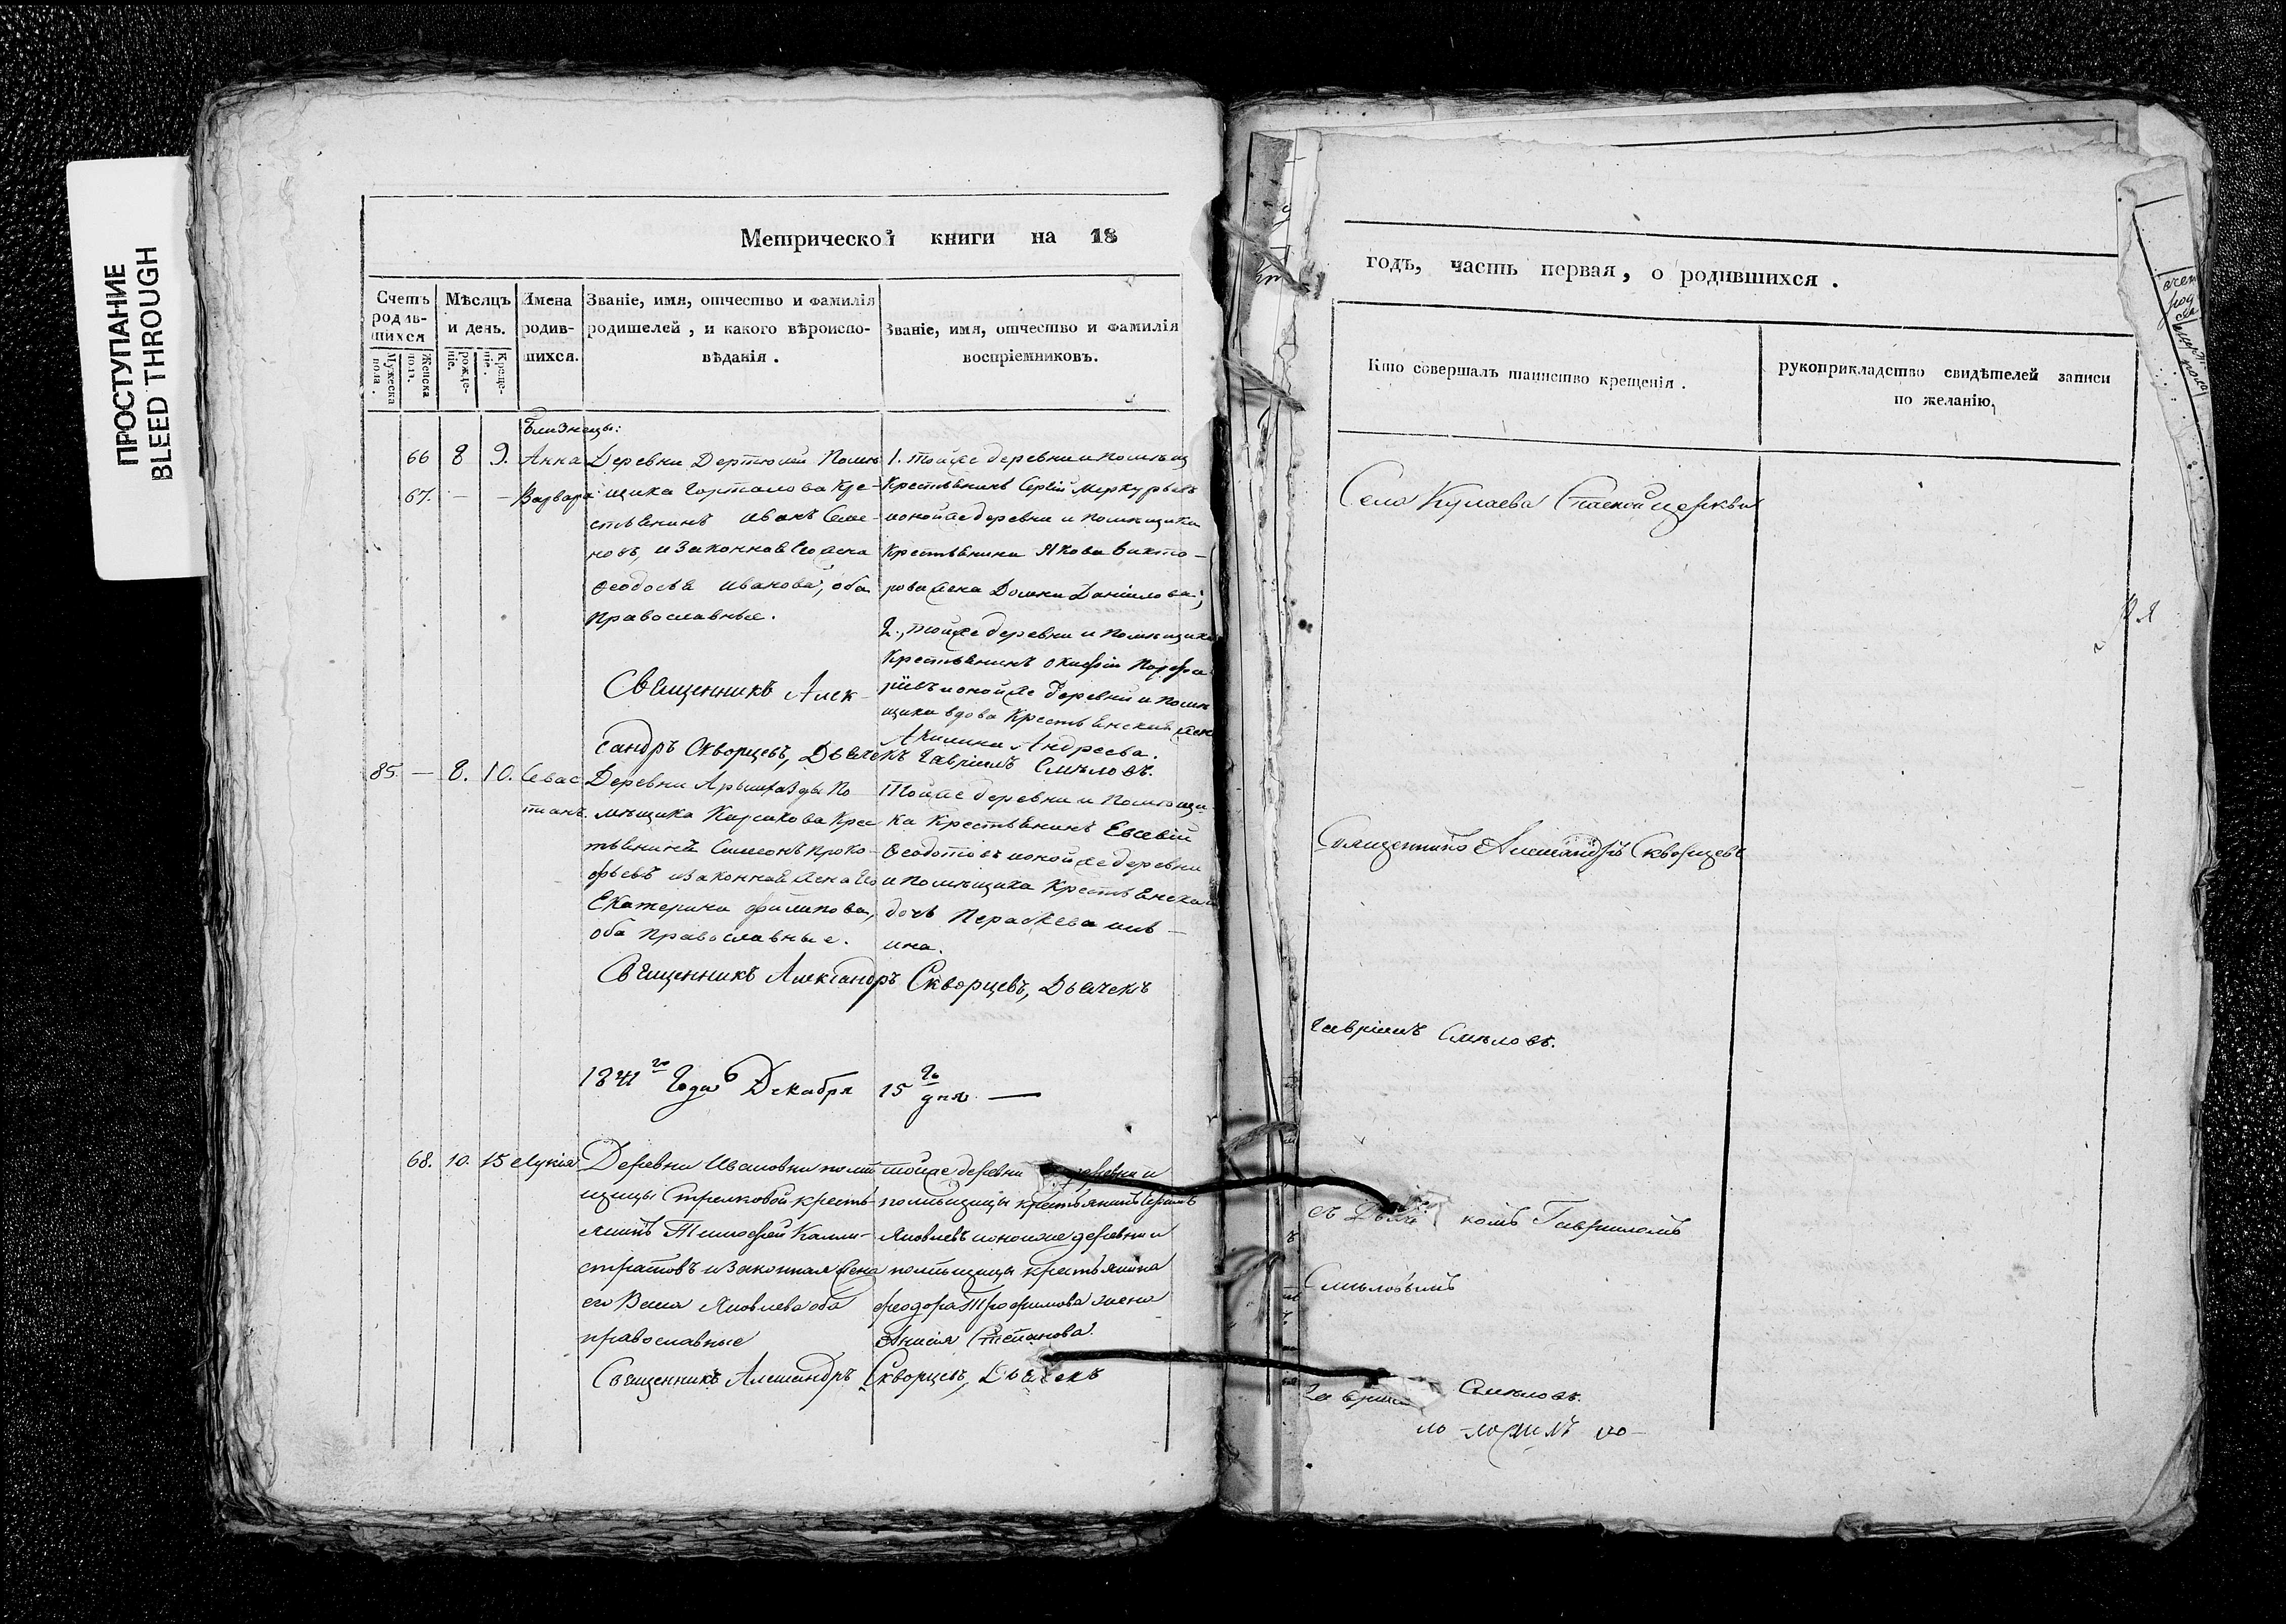 ПРОСТУПАНИЕ
BLEED THROUGH
Метрической книги на 18
Счетъ родив-шихся
Мужеска пола.
Женска полъ.
Мѣсяцъ и день.
рожде-ніе.
Креще-ніе.
Имена родив-шихся.
Званіе, имя, отчество и фамилія
родителей, и какого вѣроиспо-
вѣданія.
Званіе, имя, отчество и фамилія
воспріемниковъ.
Близнецы:
66 8 9. Анна
67. — — Варвара
Деревни Дертюлей Помѣ
щика Горталова Кре-
стьянинъ Иванъ Семе-
новъ, и законная его жена
Ѳеодосья Иванова, оба
православные.
1. Тойже деревни и помѣщ
Крестьянинъ Сергій Меркурьевъ
и онойже деревни и помѣщика
Крестьянина Якова Викто-
рова жена Домна Даніилова;
2., тойже деревни и помѣщика
Крестьянинъ
и онойже деревни и помѣ
щика вдова Крестьянская жен
Акилина Андреева.
Священникъ Алек-
сандръ Скворцевъ, Дьячекъ Гавріилъ Смѣловъ.
85. — 8. 10. Севас
тианъ.
Деревни По
мѣщика Кирсанова Крес
тьянинъ Симеонъ Проко-
фьевъ и законная жена его
Екатерина Филипова,
оба православные.
Тойже деревни и Помѣщи-
ка Крестьянинъ Евсевій
Ѳеодотовъ и онойже деревни
и помѣщика Крестьянская
дочь Параскева
ина.
Священникъ Александръ Скворцевъ, Дьячекъ
1841го Года Декабря 15го дня —
68. 10. 15 Лукія
Деревни Ивановки помѣ
щицы Стрелковой кресть-
янинъ Тимофей Калли-
стратовъ и законная жена
его Васса Яковлева оба
православные
тойже деревни деревни и
помѣщицы крестьянинъ
Яковлевъ и онойже деревни и
помѣщицы крестьянина
Феодора Трофимова жена
Анисія Степанова.
Священникъ Александръ Скворцевъ, Дьячекъ
годъ, часть первая, о родившихся.
Кто совершалъ таинство крещенія.
рукоприкладство свидѣтелей записи
по желанію,
Села Кулаева Спаской церкви
Священникъ Александръ Скворцевъ
Гавріилъ Смѣловъ.
съ Дьяч комъ Гаврииломъ
Смѣловымъ
Гавріилъ Смѣловъ.